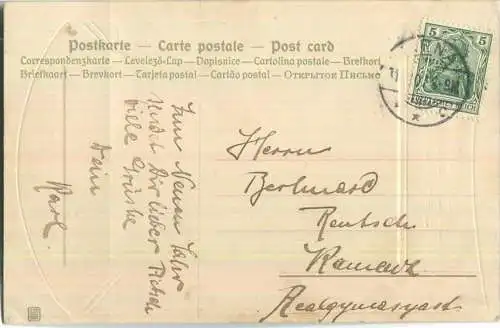 Postkarte — Carte postale — Post card
Correspondenzkarte — Levelező-Lap — Dopisnice — Cartolina postale — Brefkort
Briefkaart — Brevkort — Tarjeta postal — Cartão postal — Открытое Письмо
5 5
Zum Neuen Jahr
sendet Dir lieber
viele Grüße
Dein
Karl.
Herrn
Bernhard
Rentsch
Kamenz
Realgymnasyast